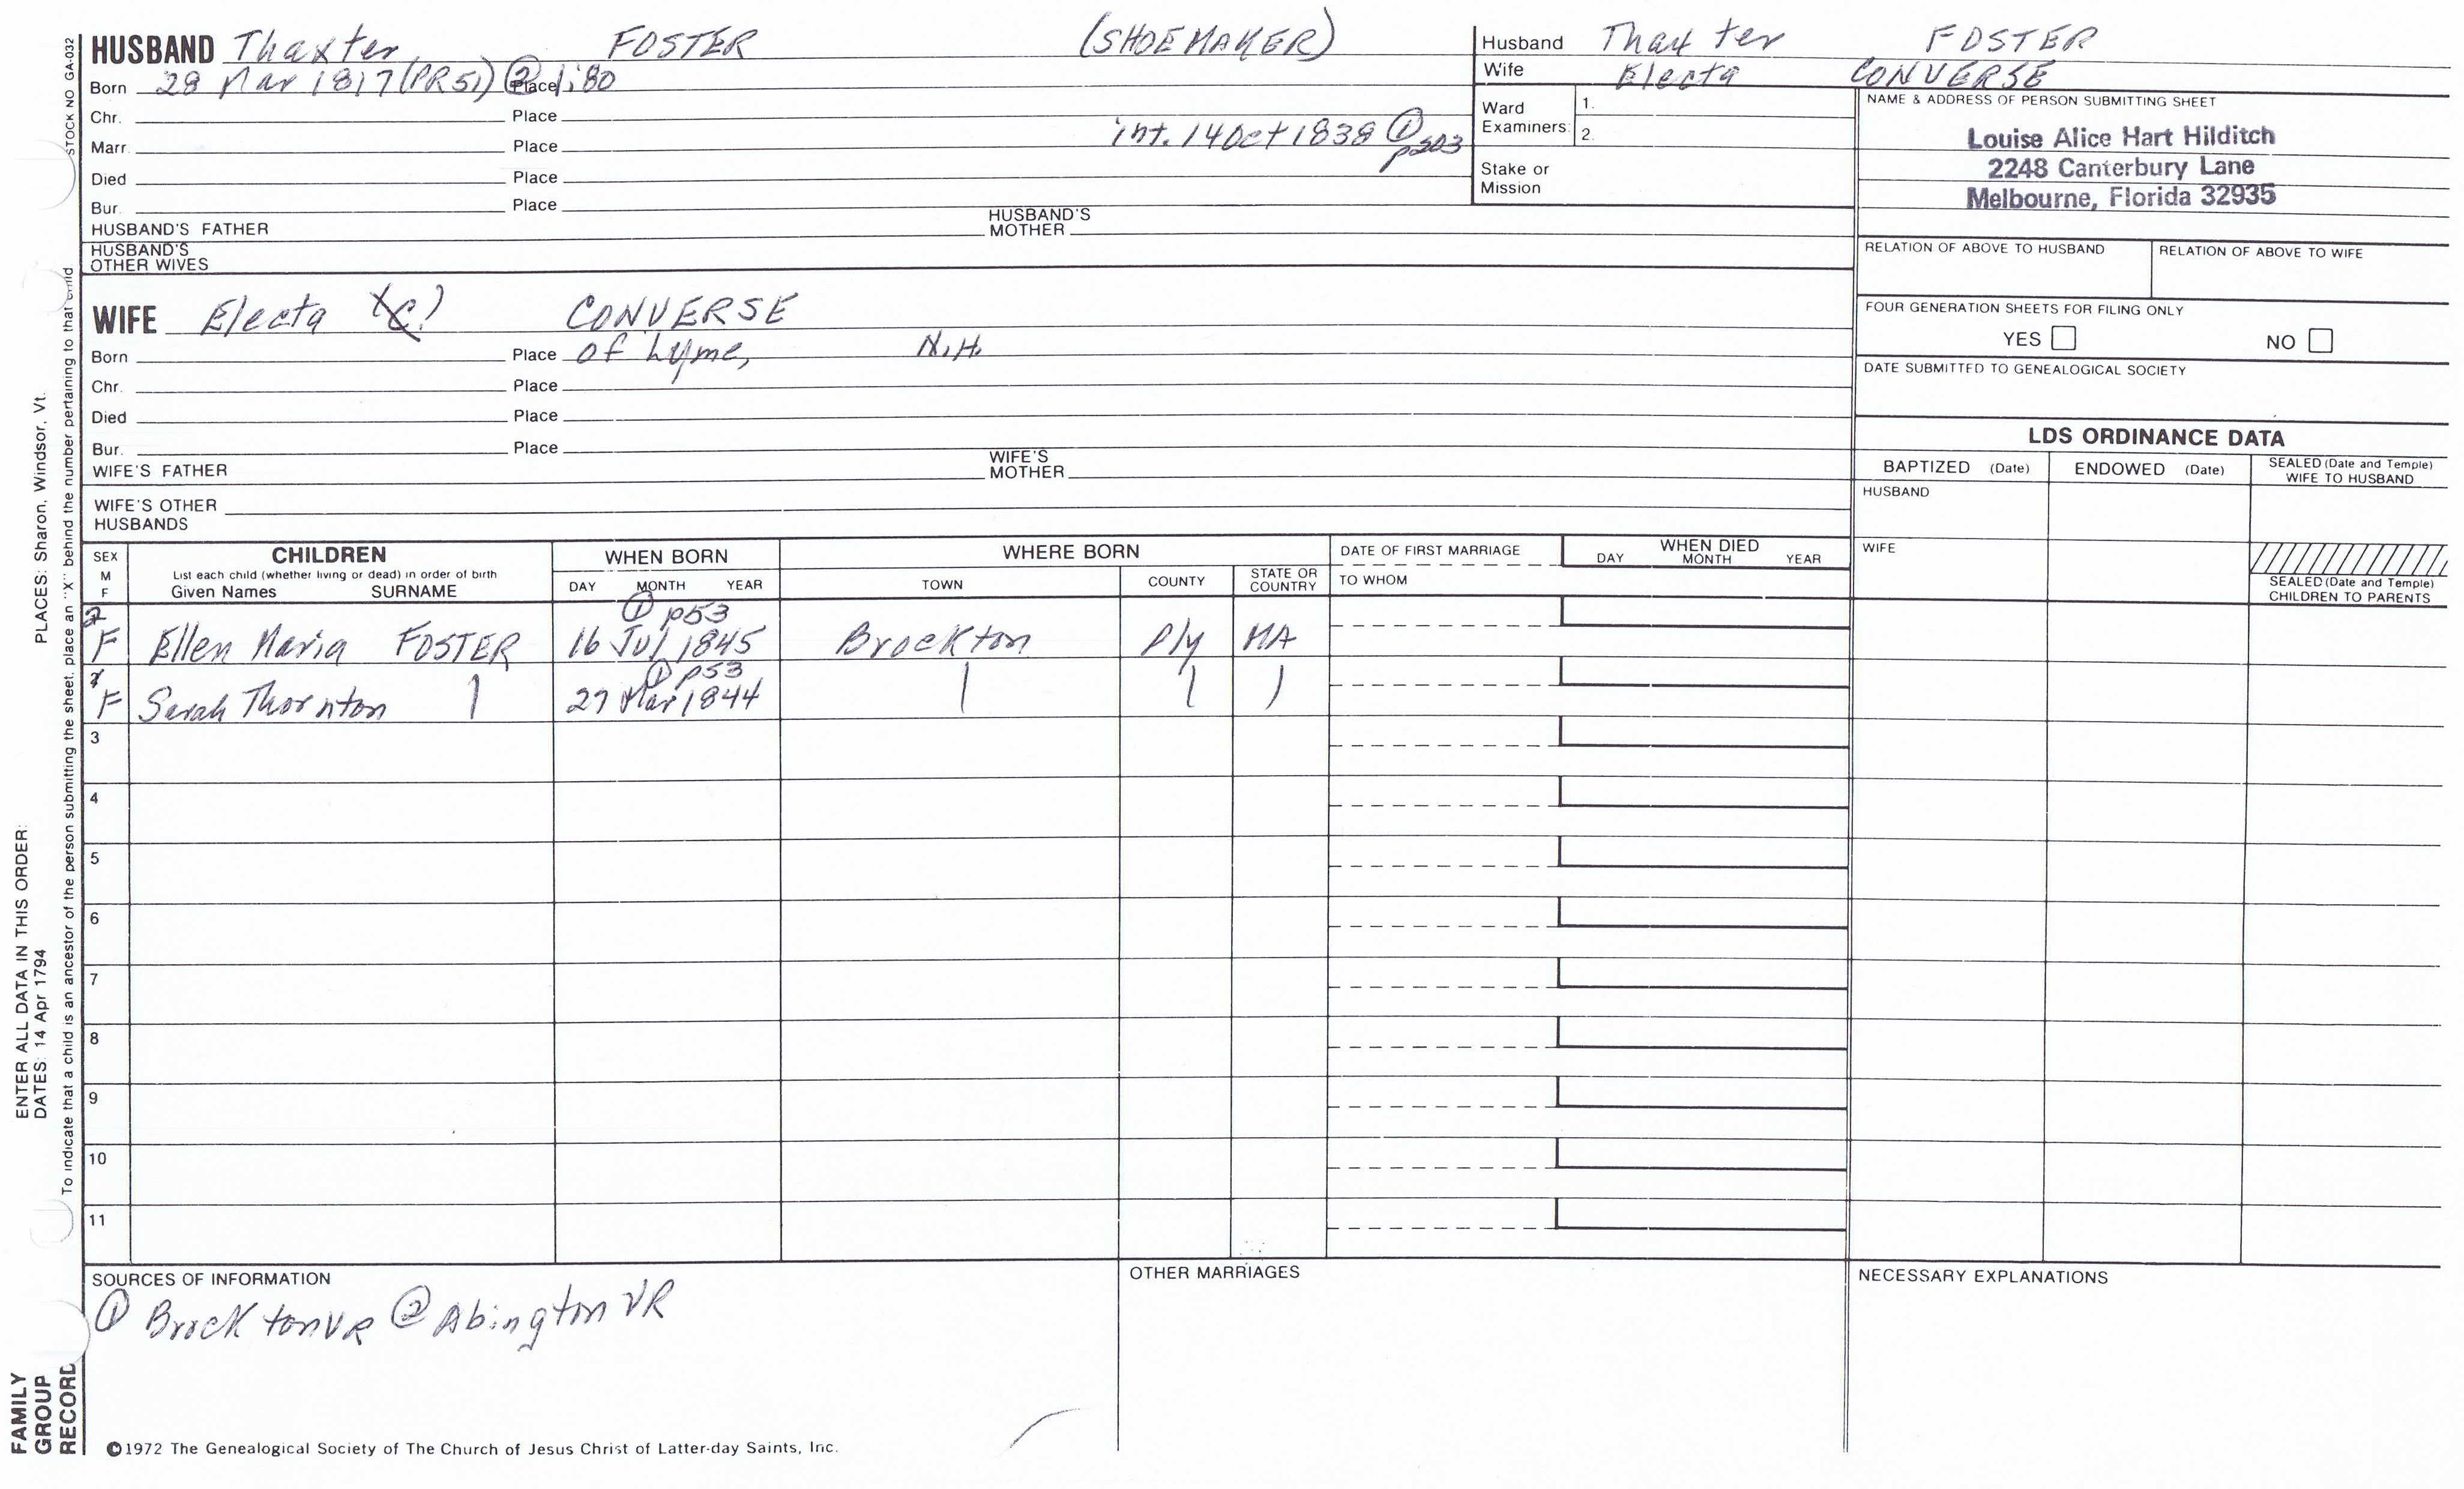 HUSBAND Thaxter FOSTER (SHOEMAKER)
Born 28 Mar 1817 (PR51) ② Place 1:80
Chr. Place
Marr. Place int. 14 Oct 1838 ① p203
Died Place
Bur. Place
HUSBAND'S FATHER HUSBAND'S MOTHER
HUSBAND'S OTHER WIVES
WIFE Electa CONVERSE
Born Place of Lyme, N.H.
Chr. Place
Died Place
Bur. Place
WIFE'S FATHER WIFE'S MOTHER
WIFE'S OTHER HUSBANDS
Husband Thaxter FOSTER
Wife Electa CONVERSE
Ward Examiners: 1. 2.
Stake or Mission
NAME & ADDRESS OF PERSON SUBMITTING SHEET
Louise Alice Hart Hilditch
2248 Canterbury Lane
Melbourne, Florida 32935
RELATION OF ABOVE TO HUSBAND RELATION OF ABOVE TO WIFE
FOUR GENERATION SHEETS FOR FILING ONLY
YES NO
DATE SUBMITTED TO GENEALOGICAL SOCIETY
LDS ORDINANCE DATA
BAPTIZED (Date) ENDOWED (Date) SEALED (Date and Temple) WIFE TO HUSBAND
HUSBAND
WIFE
SEALED (Date and Temple) CHILDREN TO PARENTS
SEX M F
CHILDREN
List each child (whether living or dead) in order of birth
Given Names SURNAME
WHEN BORN
DAY MONTH YEAR
WHERE BORN
TOWN COUNTY STATE OR COUNTRY
DATE OF FIRST MARRIAGE
TO WHOM
WHEN DIED
DAY MONTH YEAR
① p53
2 F Ellen Maria FOSTER 16 Jul 1845 Brockton Ply MA
① p53
1 F Sarah Thornton 27 Mar 1844
3
4
5
6
7
8
9
10
11
SOURCES OF INFORMATION
① Brockton VR ② Abington VR
OTHER MARRIAGES
NECESSARY EXPLANATIONS
©1972 The Genealogical Society of The Church of Jesus Christ of Latter-day Saints, Inc.
STOCK NO GA-032
To indicate that a child is an ancestor of the person submitting the sheet, place an "X" behind the number pertaining to that child
ENTER ALL DATA IN THIS ORDER:
DATES: 14 Apr 1794
PLACES: Sharon, Windsor, Vt.
FAMILY
GROUP
RECORD